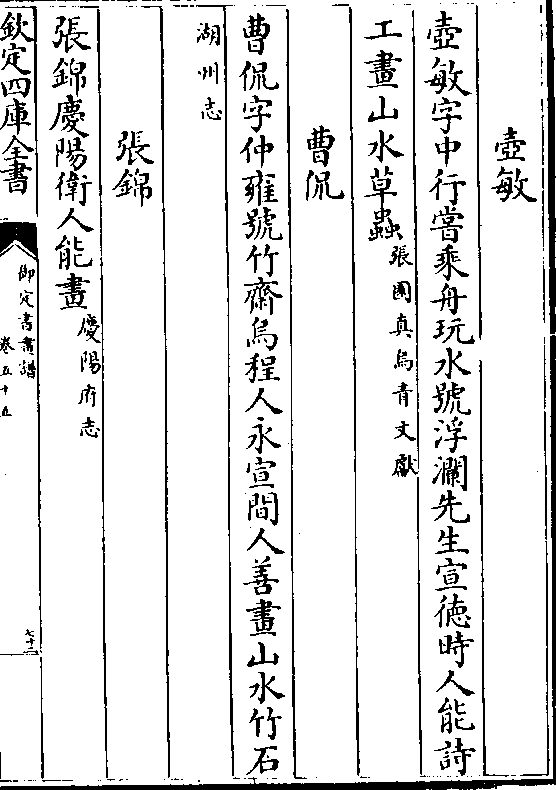 壺敏
壺敏字中行嘗乘舟玩水號浮瀾先生宣徳時人能詩
工畫山水草蟲張園真烏青文獻
曹侃
曹侃字仲雍號竹齋烏程人永宣間人善畫山水竹石
湖州志
張錦
張錦慶陽衛人能畫慶陽府志
欽定四庫全書
御定書畫譜
卷五十五
七十二